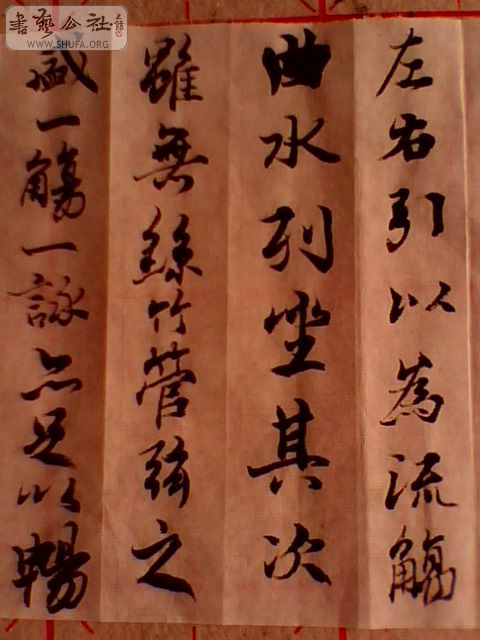 左右引以為流觴
曲水列坐其次
雖無絲竹管弦之
盛一觴一詠亦足以暢
書藝公社
WWW.SHUFA.ORG